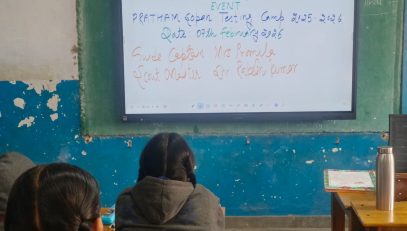 EVENT
PRATHAM Sopan Testing Camp 2025-2026
Date: 07th February 2026
Guide Captain Mrs Promila
Scout Master Dr.